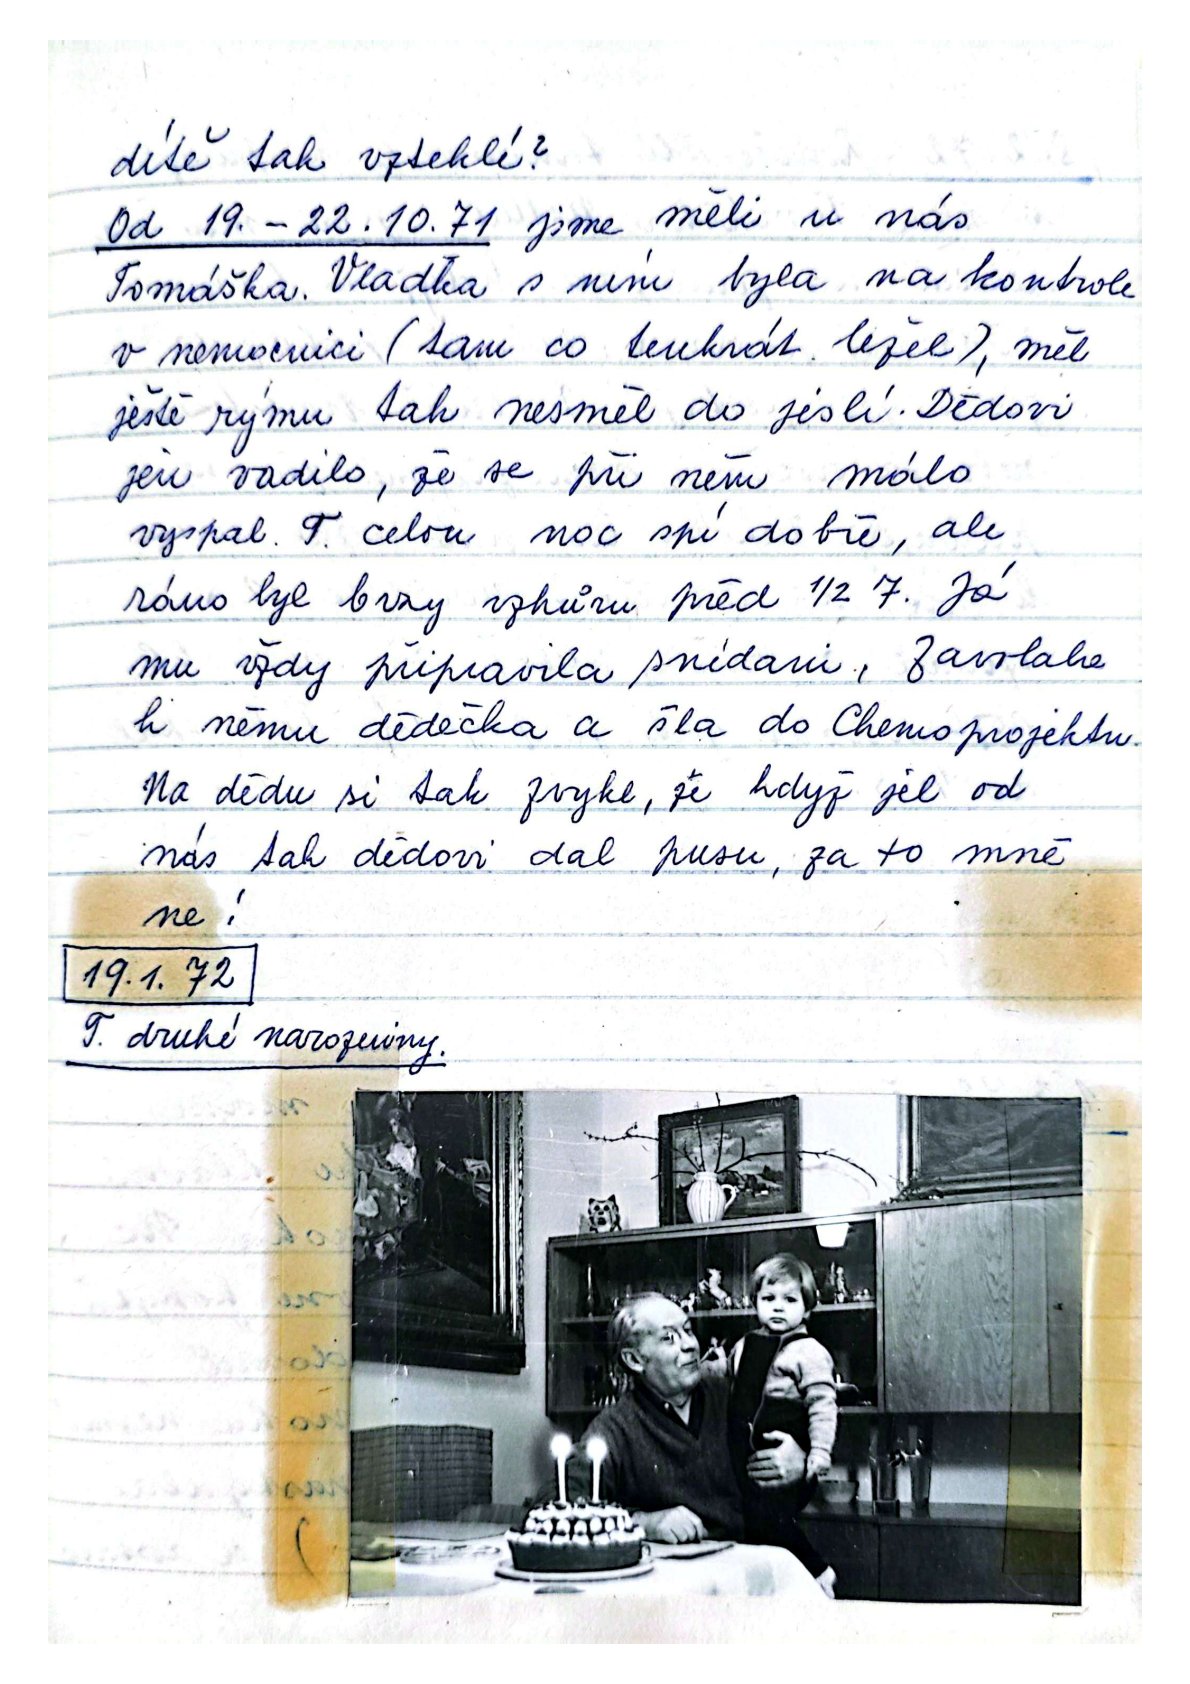 dítě tak vzteklé?
Od 19. – 22.10.71 jsme měli u nás
Tomáška. Vlaďka s ním byla na kontrole
v nemocnici (tam co tenkrát ležel), měl
ještě rýmu tak nesměl do jeslí. Dědovi
jen vadilo, že se při něm málo
vyspal. T. celou noc spí dobře, ale
ráno byl brzy vzhůru před 1/2 7. Já
mu vždy připravila snídani, zavolala
k němu dědečka a šla do Chemoprojektu.
Na dědu si tak zvykl, že když jel od
nás tak dědovi dal pusu, za to mně
ne!
19.1.72
T. druhé narozeniny.